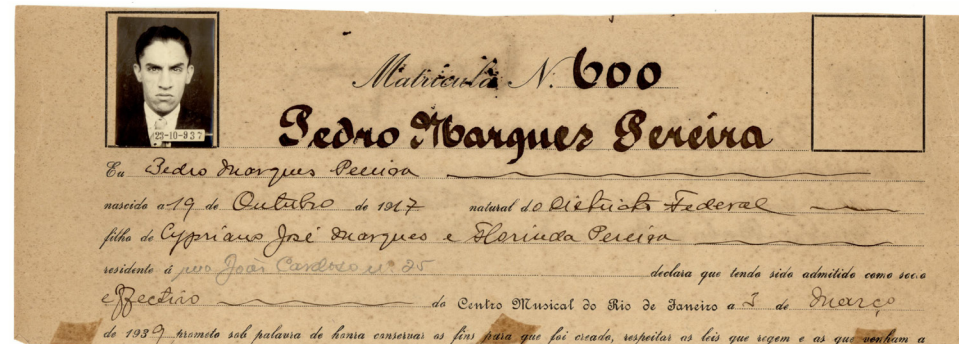 23-10-937
Matricula N. 600
Pedro Marques Pereira
Eu Pedro Marques Pereira
nascido a 19 de Outubro de 1917 natural do Districto Federal
filho de Cypriano José Marques e Florinda Pereira
residente á rua João Cardoso n. 25 declara que tendo sido admitido como socio
effectivo do Centro Musical do Rio de Janeiro a 3 de Março
de 1939 prometo sob palavra de honra conservar os fins para que foi creado, respeitar as leis que regem e as que venham a